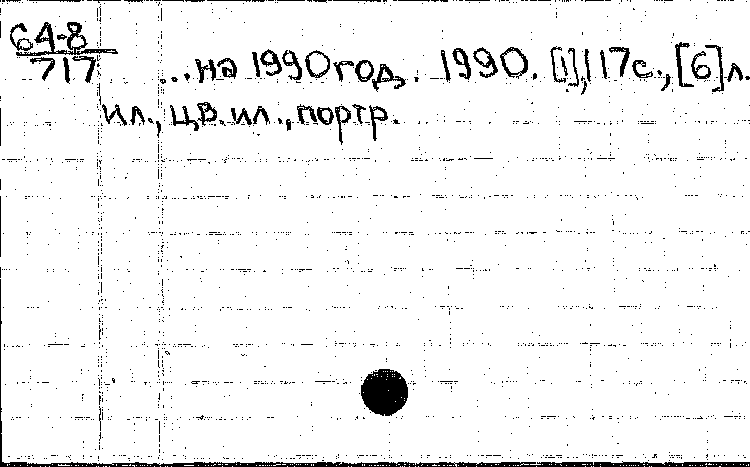 64-8
717 ...на 1990 год. 1990. [1], 117 с., [6] л.
ил., цв. ил., портр.